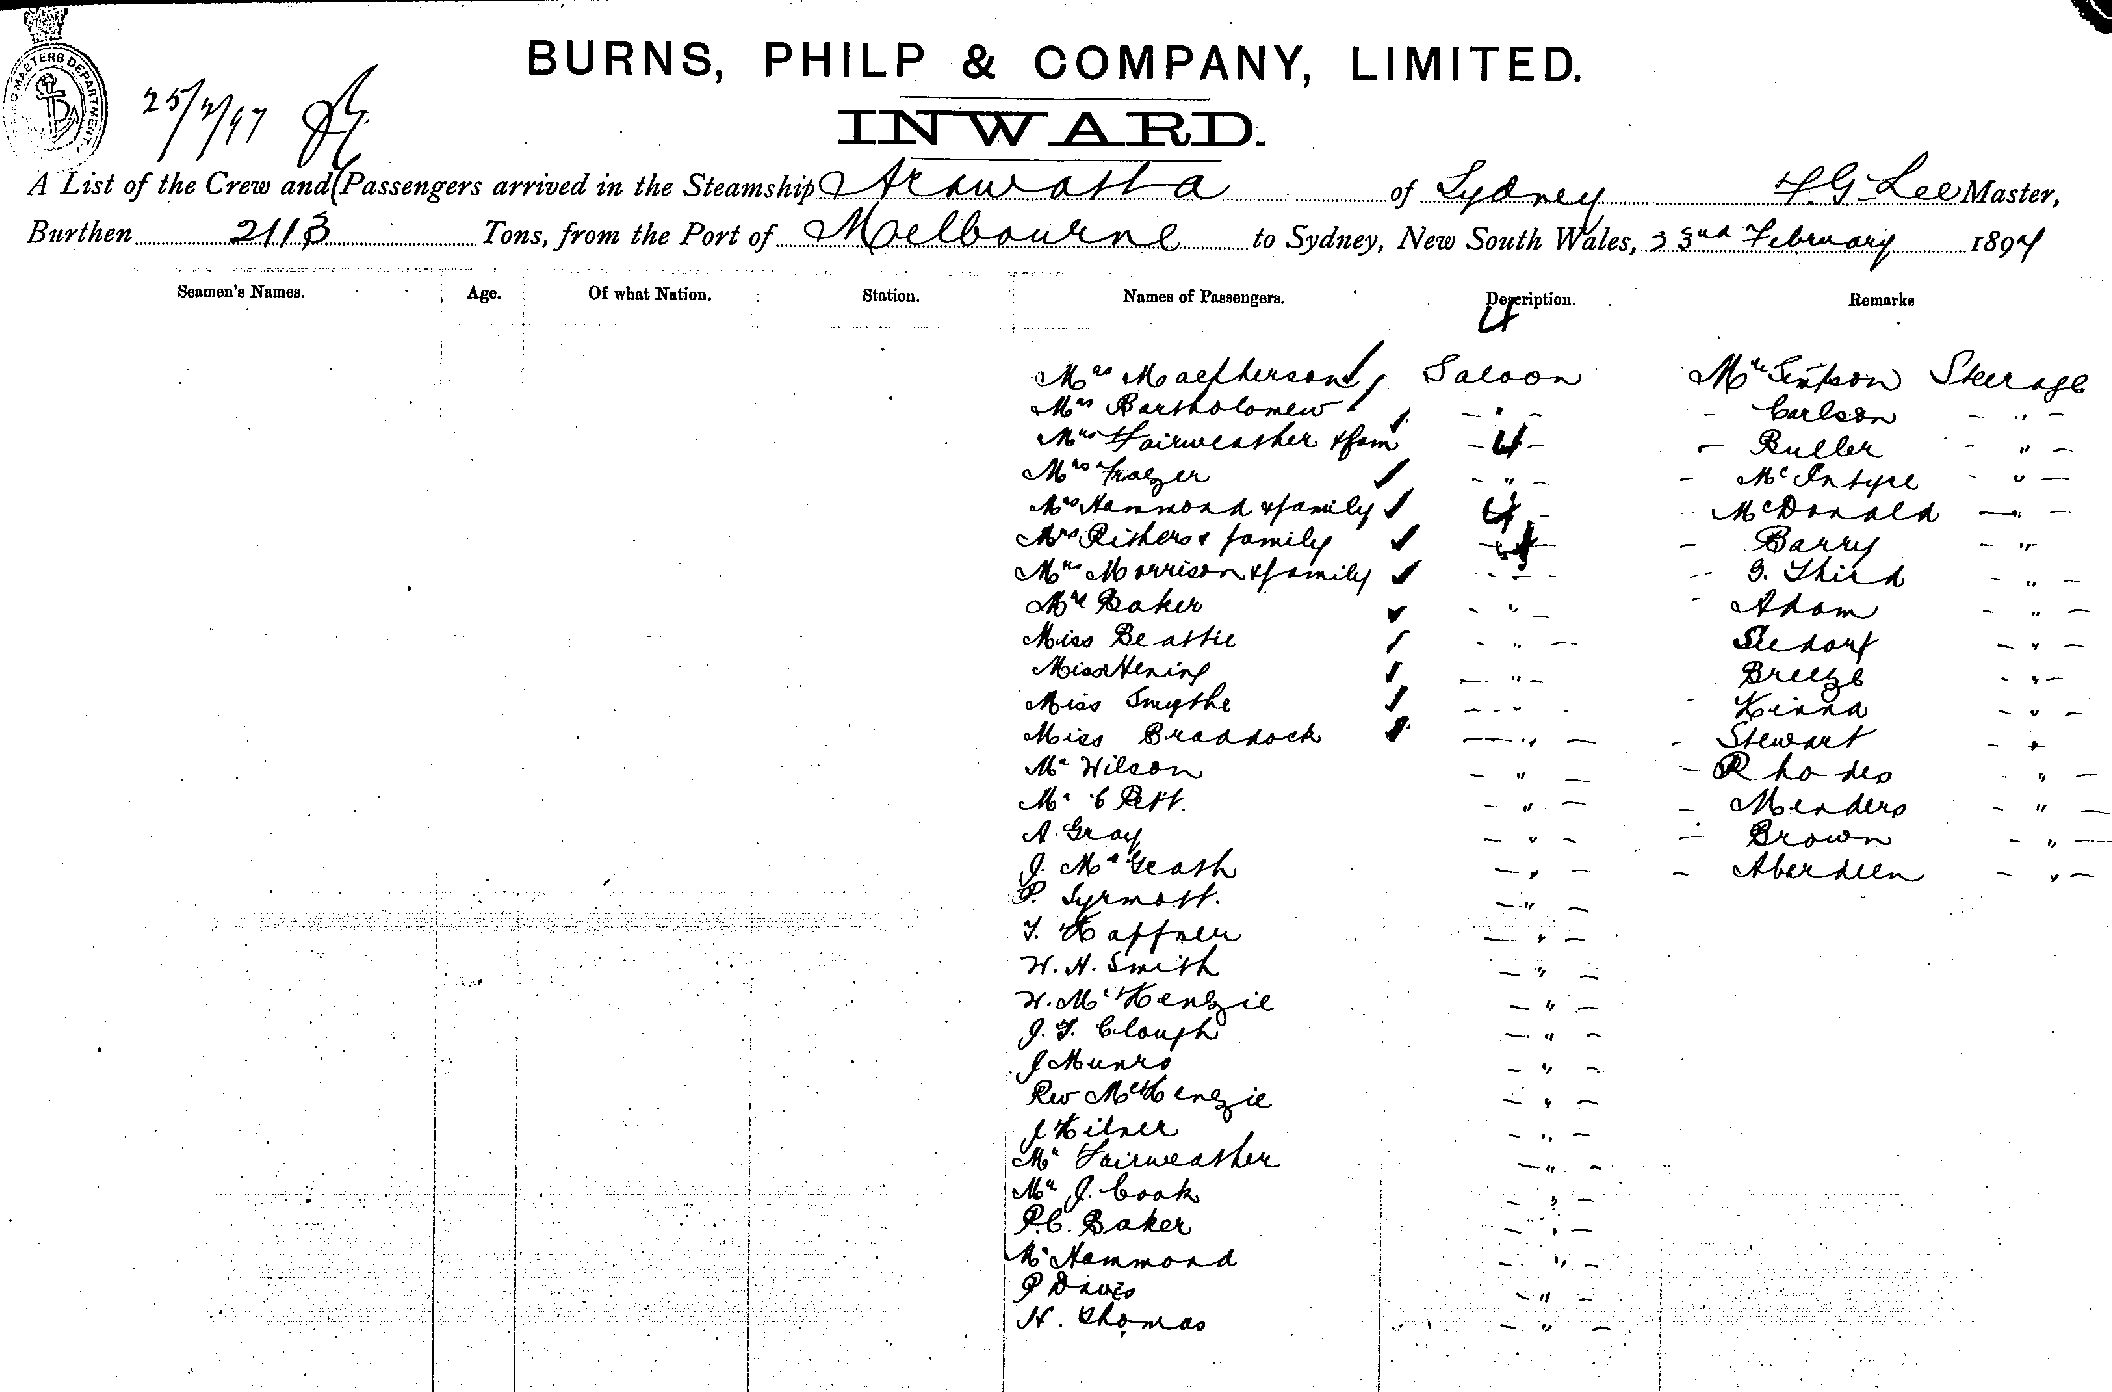 MASTERS DEPARTMENT
25/2/97
BURNS, PHILP & COMPANY, LIMITED.
INWARD.
A List of the Crew and Passengers arrived in the Steamship Arawatta of Sydney F. G. Lee Master,
Burthen 2113 Tons, from the Port of Melbourne to Sydney, New South Wales, 23rd February 1897
Seamen's Names. Age. Of what Nation. Station. Names of Passengers. Description. Remarks
4
Mrs Macpherson Saloon Mr Steerage
Mrs Bartholomew - " - - Carlson - " -
Mrs Fairweather & fam - 4 - - Buller - " -
Mrs Frazer - " - - McIntyre - " -
Mrs Hammond & family 4 - McDonald - " -
Mrs & family - 4 - - Barry - "
Mrs Morrison & family - " - - G. Third - " -
Mrs Baker - " - - Adam - " -
Miss Beattie - " - - " -
Miss - " - Breeze - " -
Miss Smythe - " - Kinna - " -
Miss Braddock - " - - Stewart - "
Mr Wilson - " - - Rhodes " -
Mr C Pett. - " - - Menders - " -
A. Gray - " - - Brown - " -
J. McGeath - " - - Aberdeen - " -
P. - " -
T. Haffner - " -
W. H. Smith - " -
W. McKenzie - " -
J. T. Clough - " -
J Munro - " -
Rev McKenzie - " -
J Kilner - " -
Mr Fairweather - " -
Mr J. Cook - " -
P. C. Baker - " -
Mr Hammond - " -
P Davis - " -
H. Thomas - " -